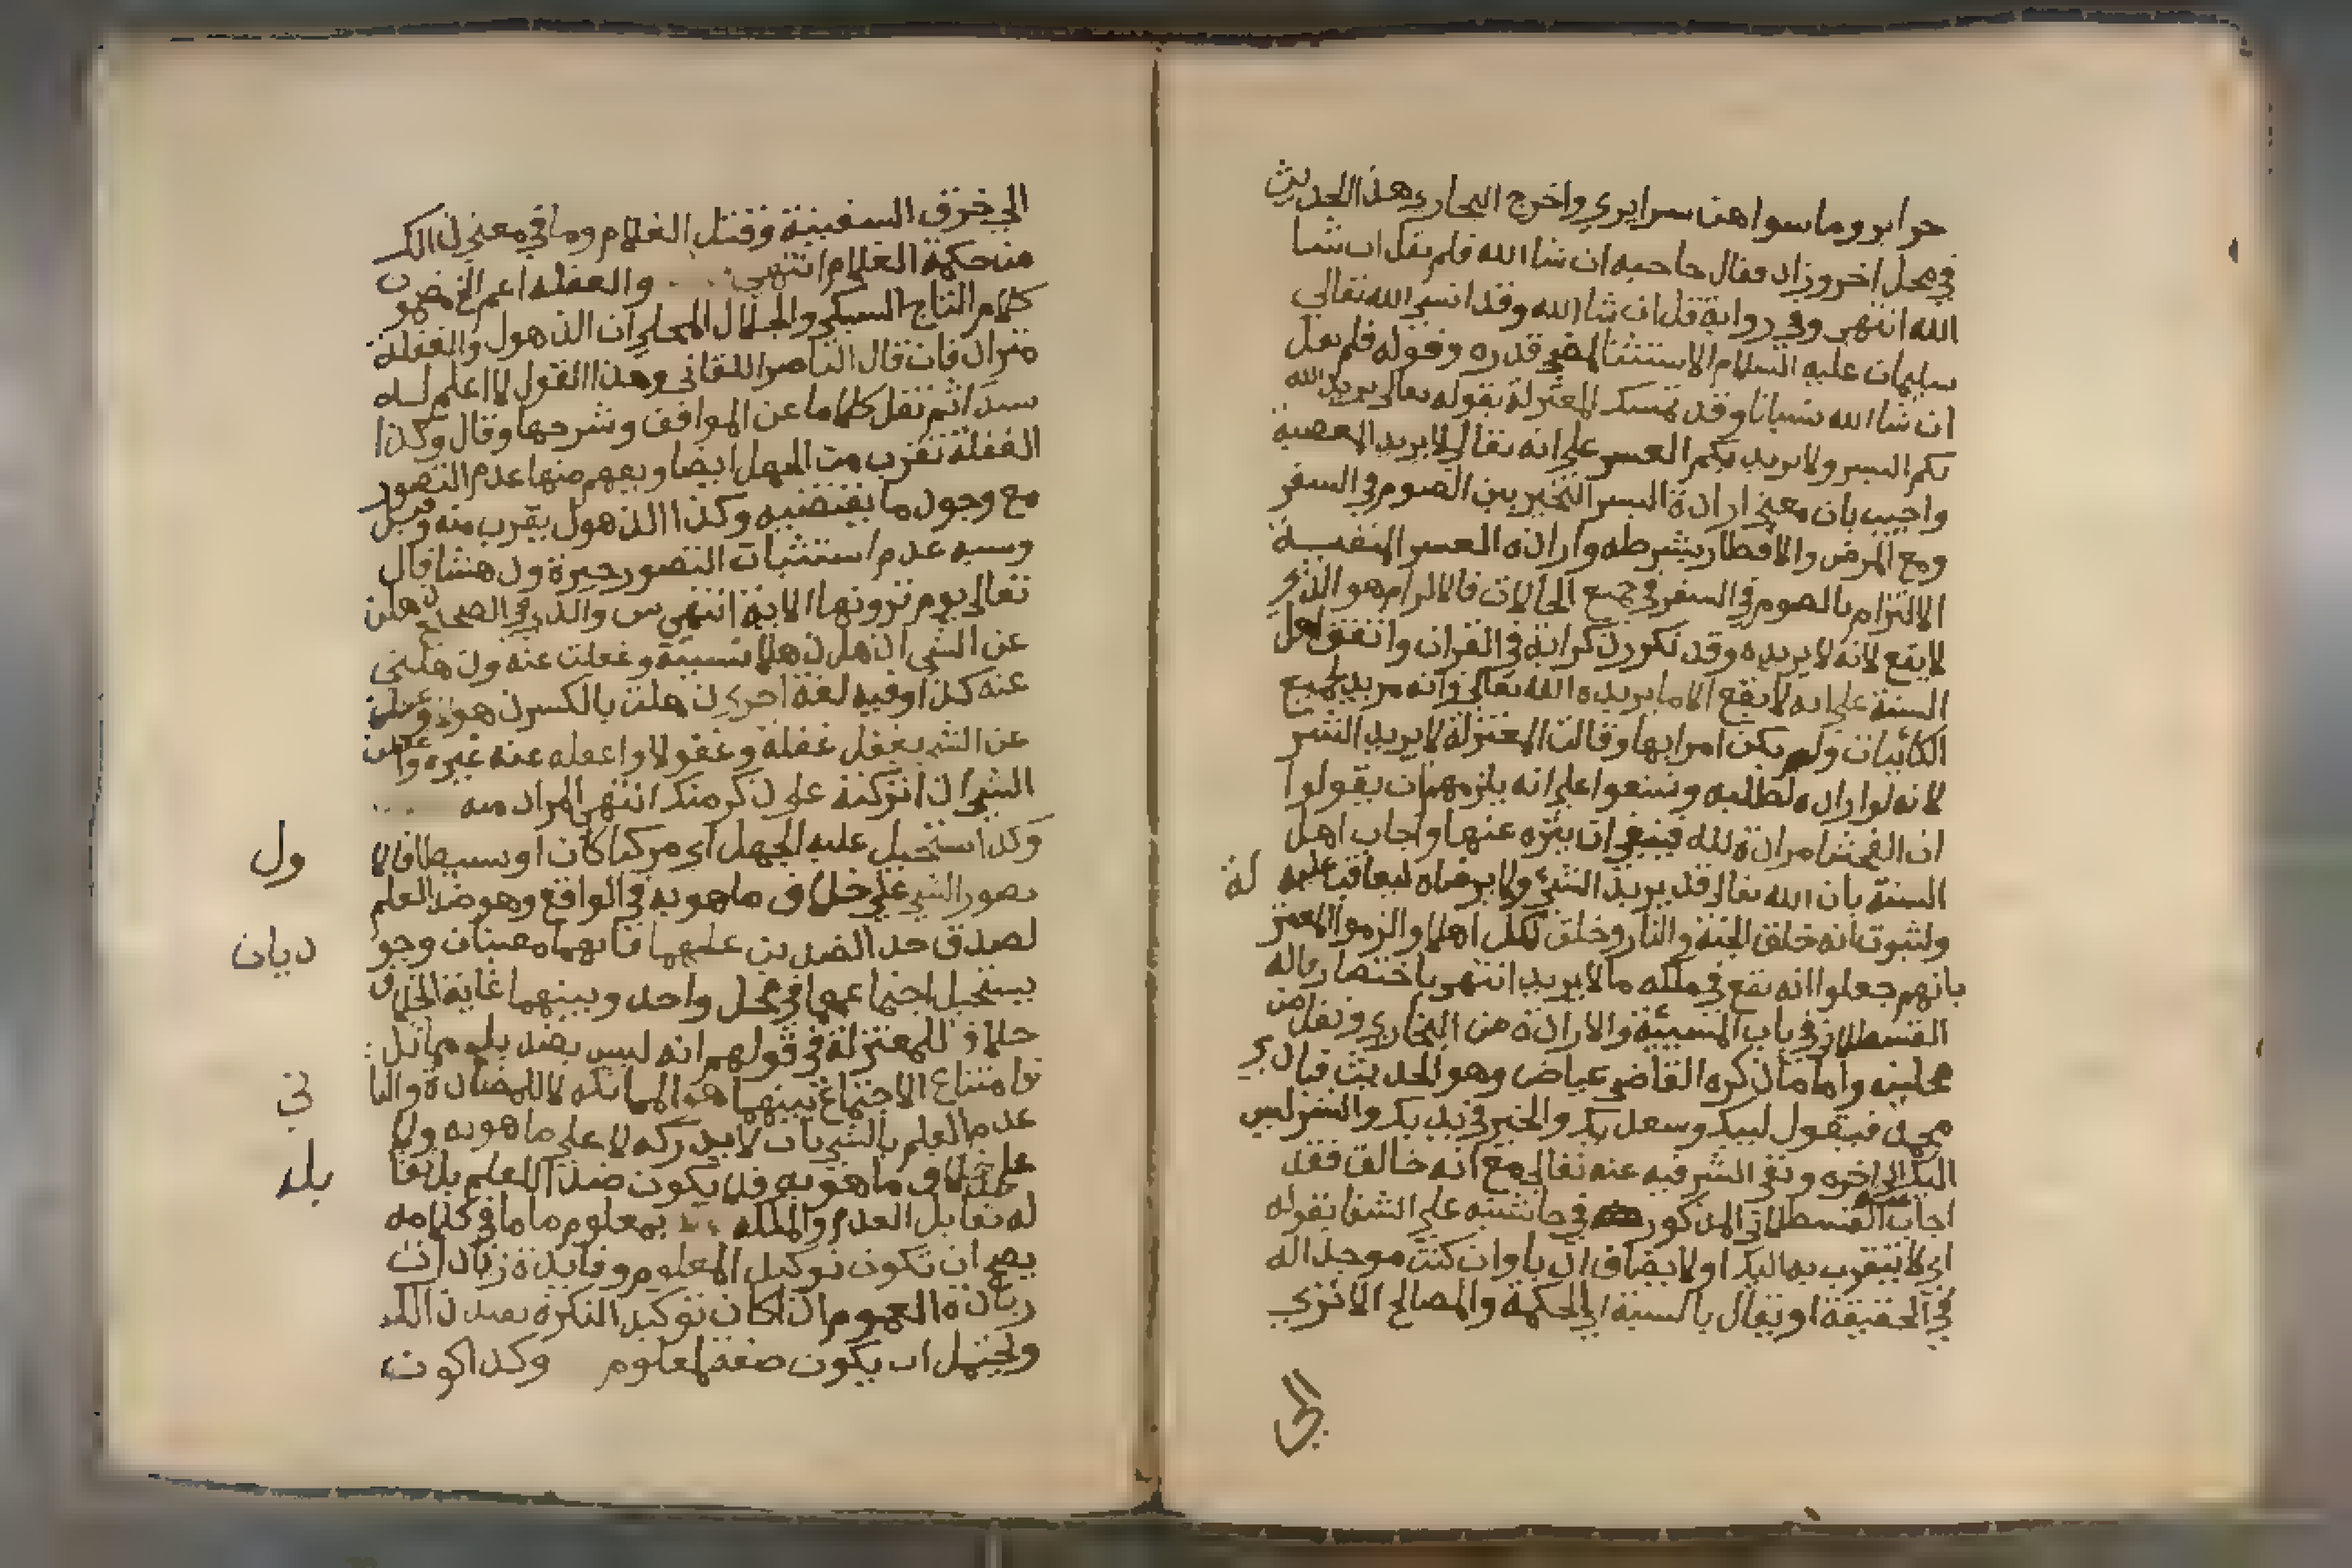 حرابر وما سواهن سرايري واخرج البخاري هذا الحديث
في محل اخر وزاد فقال صاحبه ان شا الله فلم يقل ان شا
الله انتهي وفي رواية قل ان شا الله وقد انسي الله تعالي
سليمان عليه السلام الاستثنا لمضي قدره وقوله فلم يقل
ان شا الله نسيانا وقد تمسك المعتزلة بقوله تعالي يريد الله
بكم اليسر ولا يريد بكم العسر علي انه تعالي لا يريد المعصية
واجيب بان معني ارادة اليسر التخيير بين الصوم في السفر
ومع المرض والافطار بشرطه وارادة العسر المنفية
الالتزام بالصوم في السفر في جميع الحالات فالالزام هو الذي
لا يقع لانه لا يريده وقد تكرر ذكر اية في القران واتفق اهل
السنة علي انه لا يقع الا ما يريده الله تعالي وانه مريد لجميع
الكائنات ولم يكن امرا بها وقالت المعتزلة لا يريد الشر
لانه لو اراده لطلبه وشنعوا علي انه يلزمهم ان يقولوا
ان الفحشا مرادة لله فينبغي ان ينزه عنها واجاب اهل
السنة بان الله تعالي قد يريد الشي ولا يرضاه ليعاقب عليه
ولثبوت انه خلق الجنة والنار وخلق لكل اهلا والزموا المعتز
لة
بانهم جعلوا انه يقع في ملكه ما لا يريد انتهي باختصار قاله
القسطلاني في باب المشيئة والارادة من البخاري ونقل من
محلينه واما ما ذكره القاضي عياض وهو الحديث فينادي
محمد فيقول لبيك وسعديك والخير في يديك والشر ليس
اليك الي اخره ونفي الشر فيه عنه تعالي مع انه خالق فقد
اجاب القسطلاني المذكور في حاشيته علي الشفا بقوله
اي لا يتقرب به اليك او لا يضاف اليك وان كنت موجدا له
في الحقيقة او يقال بالنسبة الي الحكمة والمصالح الا تري
الي
الي خرق السفينة وقتل الغلام وما في معني ذلك
من حكمة الغلام انتهي والغفلة اعم الخ مضمون
كلام التاج السبكي والجلال المحلي ان الذهول والغفلة
مترادفان قال الناصر اللقاني وهذا القول لا اعلم له
سندا ثم نقل كلاما عن المواقف وشرحها وقال وكذا
الغفلة تقرب من الجهل ايضا ويفهم منها عدم التصور
مع وجود ما يقتضيه وكذا الذهول يقرب منه وقيل
وسببه عدم استثبات التصور حيرة ودهشا قال
تعالي يوم ترونها الاية انتهي س والذي في الصحاح ذهلت
عن الشي اذهل ذهلا نسيته وغفلت عنه وذهلني
عنه كذا وفيه لغة اخري ذهلت بالكسر ذهولا وغفلت
عن الشي يغفل غفلة وغفولا واغفله عنه غيره واغفلت
الشي اذا تركته علي ذكر منك انتهي المراد منه
وكذا يستحيل عليه الجهل اي مركبا كان او بسيطا فالا
ول
تصور الشي علي خلاف ما هو به في الواقع وهو ضد العلم
لصدق حد الضدين عليهما فانهما معنيان وجو
ديان
يستحيل اجتماعهما في محل واحد وبينهما غاية الخلاف
خلافا للمعتزلة في قولهم انه ليس بضد بل مماثل
فامتناع الاجتماع بينهما هو المماثلة لا للمضادة والثا
ني
عدم العلم بالشي بان لا يدركه لا علي ما هو به ولا
علي خلاف ما هو به فلا يكون ضدا للعلم بل مقا
بلا
له تقابل العدم والملكة بمعلوم ما ما في كلامه
يصح ان تكون توكيد المعلوم وفائدة زيادة
زيادة العموم اذا كان توكيد النكرة
ويحتمل ان يكون صفة لمعلوم وكذا كون